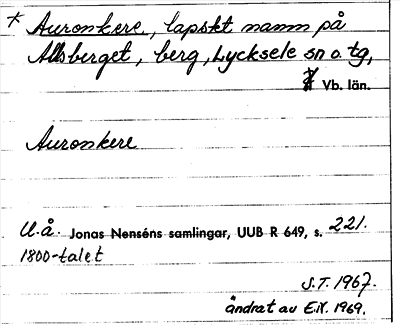 * Auronkere, lapskt namn på
Allsberget, berg, Lycksele sn o. tg,
Vb. län.
Auronkere
U.å. Jonas Nenséns samlingar, UUB R 649, s. 221.
1800-talet
S.T. 1967.
ändrat av E.N. 1969.